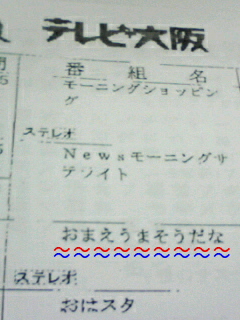 テレビ大阪
番組名
モーニングショッピン
グ
ステレオ
Newsモーニングサ
テライト
おまえうまそうだな
ステレオ
おはスタ